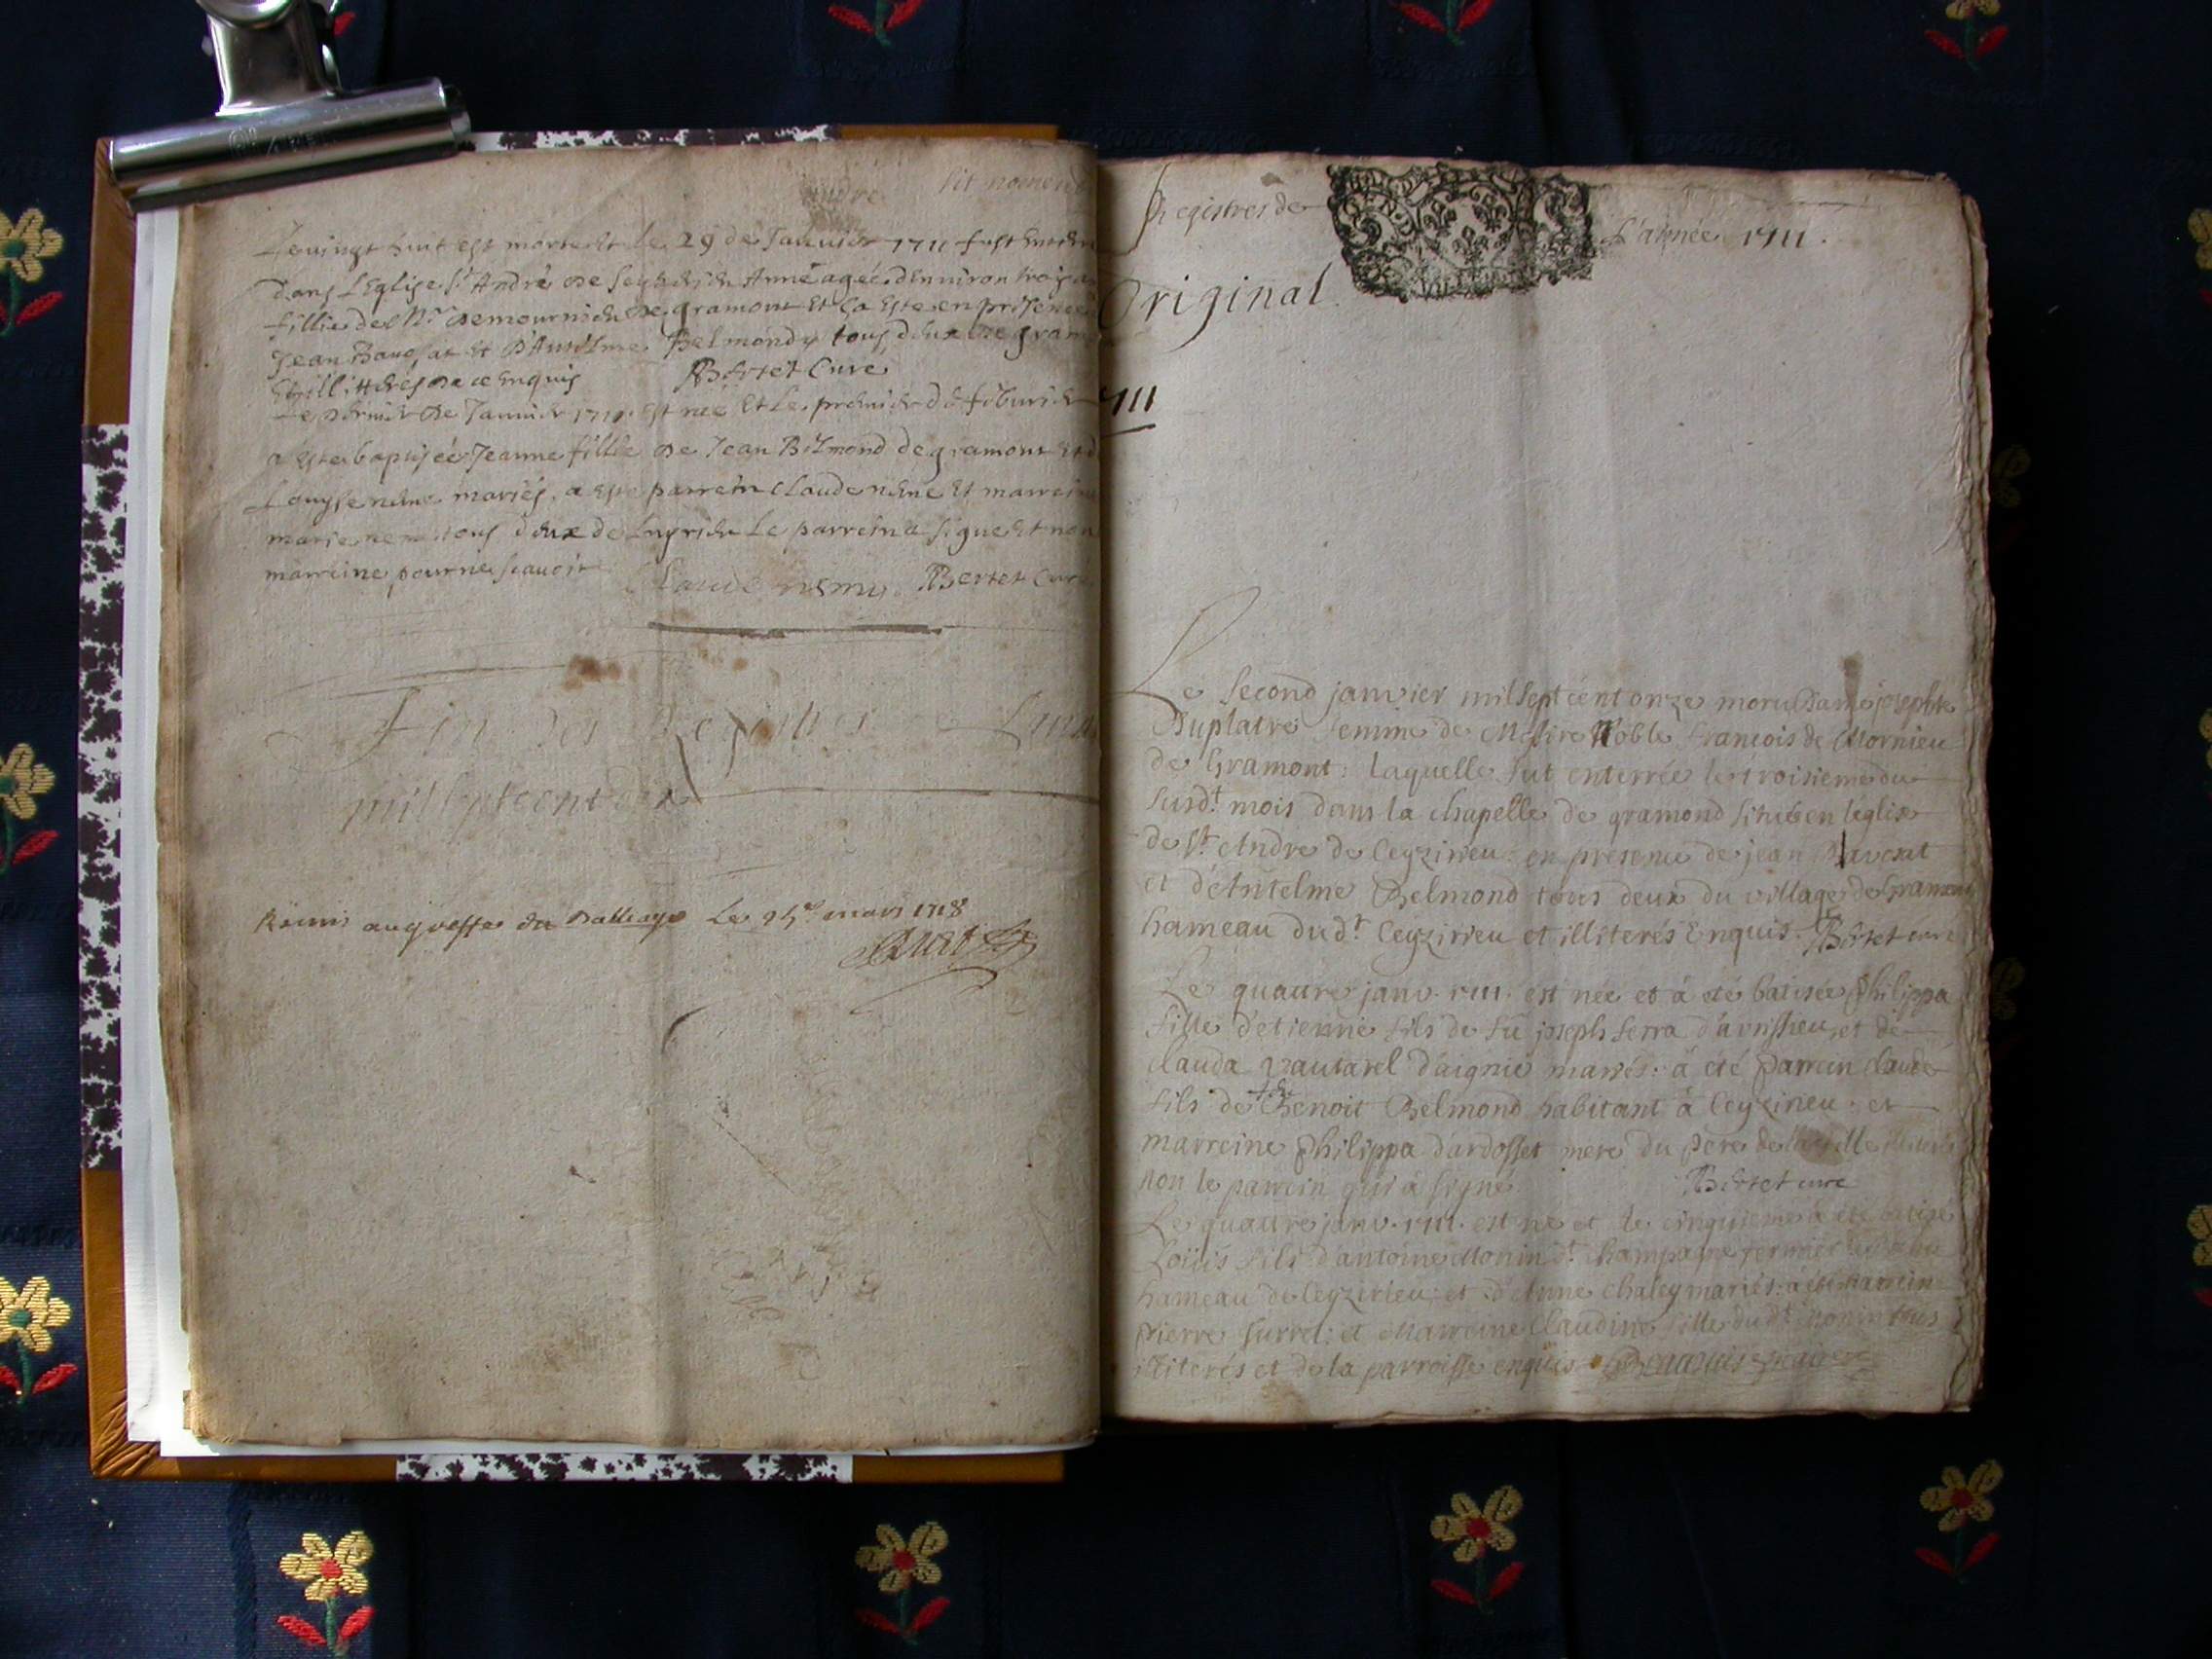 Le vingt huit est morte et le 29 de Janvier 1711 fust
dans l'Eglise St André de Anne agée d'environ trois
fillie de Mr Demournieu de gramont Et ça Este en presence
Jean Et D'Antelme Belmond tous deux de gram
Et illitterés de ce Enquis Bertet Curé
Le dernier de Janvier 1711 est née Et Le premier de feburier
a Esté baptisée Jeanne fillie de Jean Belmond de gramont Et
Louyse neme mariés. a esté parrein Claude neme Et marreine
marie neme tous deux de Le parrein a signe Et non
marreine pour ne scavoir Claude neme Bertet Curé
Fin des Registres
mil sept cent dix
Remis au greffe du Balliage Le mars 1718
Registres de L'année 1711.
Original
711
Le second janvier mil sept cent onze morut Dame josephte
Duplatre femme de Messire Noble francois de Mornieu
de Gramont: laquelle fut enterrée le troisieme du
susdt mois dans la chapelle de gramond situé en leglise
de St Andre de Ceyzirieu: en presence de jean Bavosat
et d'Antelme Belmond tous deux du village de Gramont
hameau dudt Ceyzirieu et illiterés Enquis. Bertet curé
Le quattre janv. 1711. est née et à été batisée Philippa
fille d'etienne fils de fû joseph serra d'avrissieu, et de
clauda vautarel d'aignie mariés: à été parrein claude
fils de feu Benoit Belmond habitant à Ceyzirieu. et
marreine Philippa d'ardosset mere du pere de la fille
non le parrein qui à signé Bertet curé
Le quattre janv. 1711. est né et le cinquieme à été batisé
Loüis fils d'antoine Monin dt champagne fermier
hameau de Ceyzirieu; et d'Anne Chaley mariés: à été parrein
pierre surrel: et Marreine Claudine fille dudt Monin tous
illiterés et de la parroisse enquis